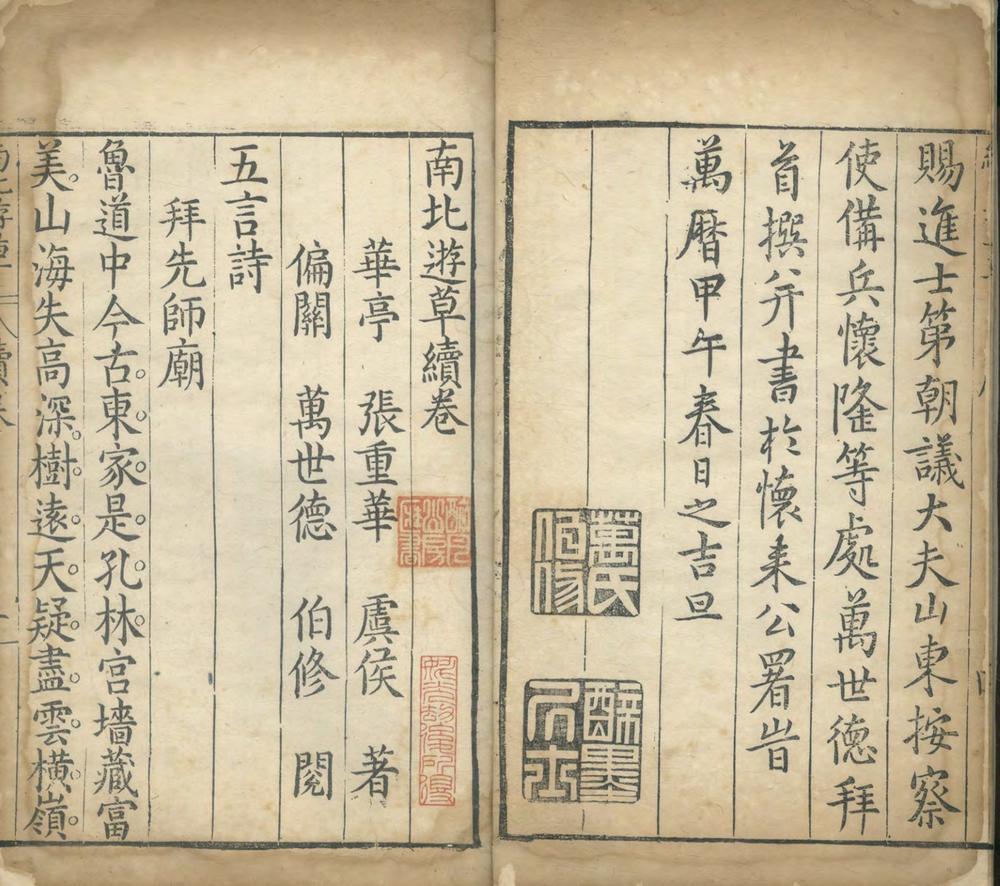 賜進士第朝議大夫山東按察
使備兵懷隆等處萬世德拜
首撰并書於懷來公署旹
萬曆甲午春日之吉旦
萬氏伯脩
南北遊草續卷
華亭 張重華 虞侯 著
偏關 萬世德 伯修 閱
五言詩
拜先師廟
魯道中今古。東家是孔林。宮墻藏富
美。山海失高深。樹遠天疑盡。雲橫嶺